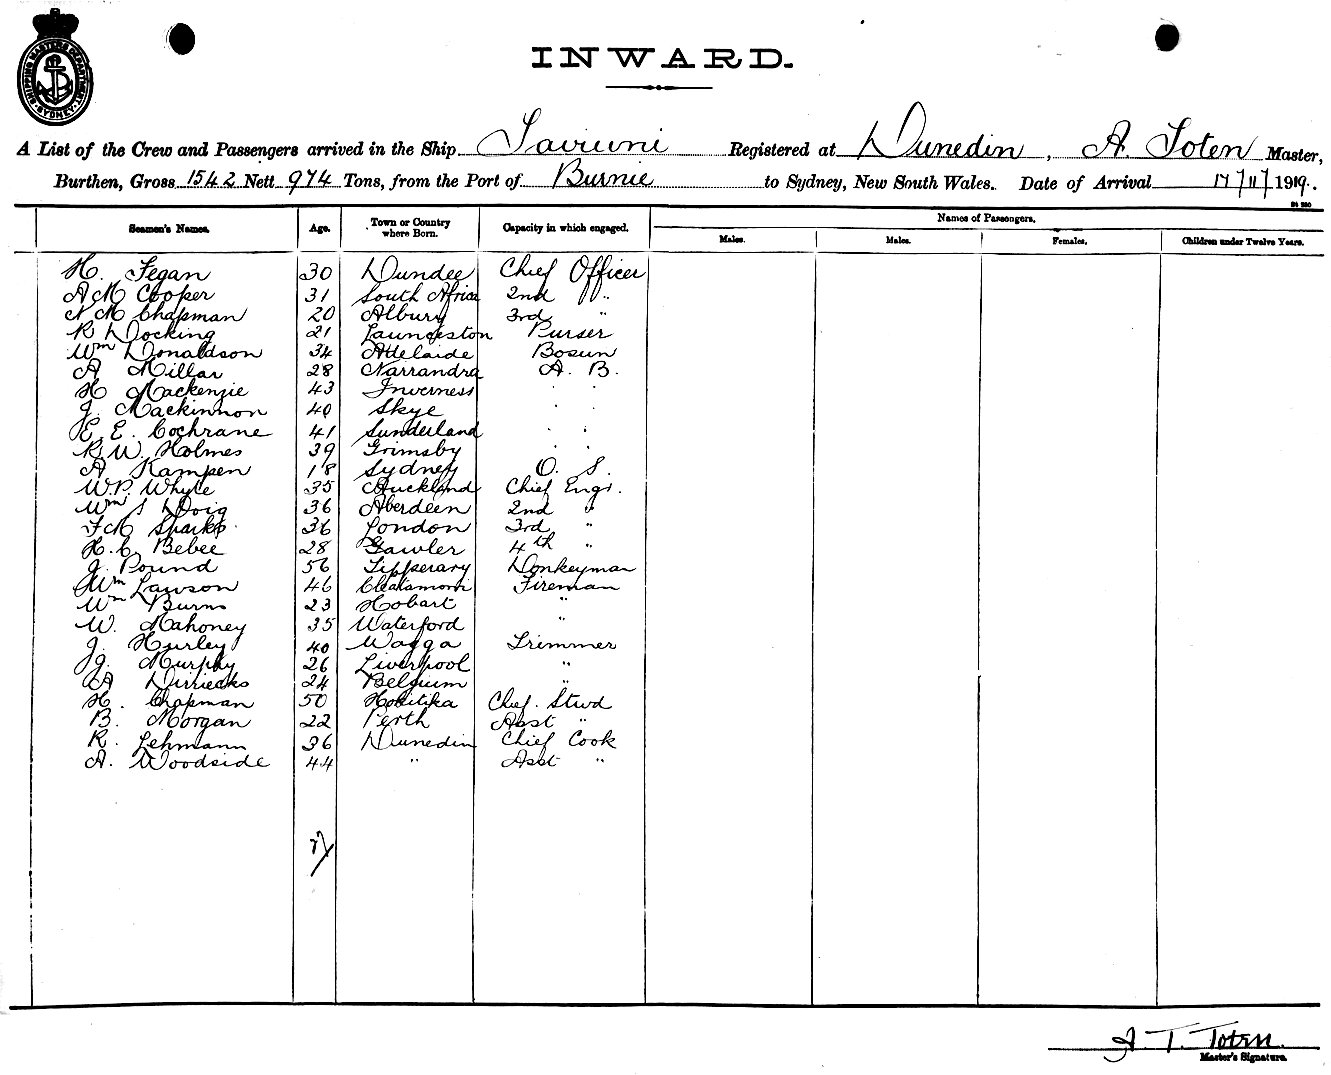 SHIPPING MASTER'S DEPARTMENT SYDNEY
INWARD.
A List of the Crew and Passengers arrived in the Ship Taviuni Registered at Dunedin, A. Toten Master,
Burthen, Gross 1542 Nett 974 Tons, from the Port of Burnie to Sydney, New South Wales. Date of Arrival 17/11/1919.
Names of Passengers.
Seamen's Names. Age. Town or Country where Born. Capacity in which engaged. Males. Males. Females. Children under Twelve Years.
H. Fegan 30 Dundee Chief Officer
A M Cooper 31 South Africa 2nd "
N M Chapman 20 Albury 3rd "
R Docking 21 Launceston Purser
Wm Donaldson 34 Adelaide Bosun
A Millar 28 Narrandra A. B.
H Mackenzie 43 Inverness " "
J. Mackinnon 40 Skye " "
E. E. Cochrane 41 Sunderland " "
R. W. Holmes 39 Grimsby " "
A Kampen 18 Sydney O. S.
W. P. Whyte 35 Auckland Chief Engr.
Wm S Doig 36 Aberdeen 2nd "
F M Sparks 36 London 3rd "
H. C. Bebee 28 Gawler 4th "
J. Pound 56 Tipperary Donkeyman
Wm Lawson 46 Fireman
Wm Burns 23 Hobart "
W. Mahoney 35 Waterford "
J. Hurley 40 Wagga Trimmer
J. Murphy 26 Liverpool "
A Dirriecks 24 Belgium "
H. Chapman 50 Hokitika Chief. Stwd
B. Morgan 22 Perth Asst "
R. Lehmann 36 Dunedin Chief Cook
A. Woodside 44 " Asst "
A. T. Toten
Master's Signature.